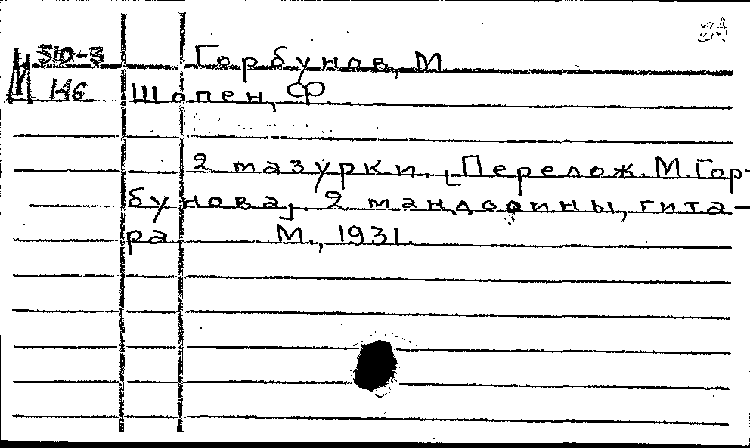 М 510-3 Горбунов, М
146 Шопен, Ф.
2 мазурки. [Перелож. М. Гор-
бунова]. 2 мандолины, гита-
ра М., 1931.